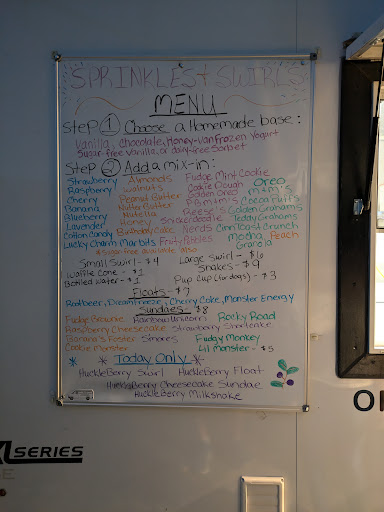 SPRINKLES + SWIRLS
MENU
Step 1 Choose a Homemade base:
Vanilla, Chocolate, Honey-Van Frozen Yogurt
Sugar-free Vanilla, or dairy-free Sorbet
Step 2 Add a mix-in:
Strawberry Almonds Fudge Mint Cookie
Raspberry Walnuts Cookie Dough Oreo
Cherry Peanut Butter Golden Oreo m+m's
Banana Nutter Butter P.B. m+m's Cocoa Puffs
Blueberry Nutella Reese's Golden Grahams
Lavender Honey Snickerdoodle Teddy Grahams
Cotton Candy Birthday Cake Nerds Cinn. Toast Crunch
Lucky Charm Marbits Fruity Pebbles Mocha Peach
*Sugar free available also Granola
Small Swirl - $4 Large Swirl - $6
Waffle Cone - $1 Shakes - $9
Bottled Water - $1 Pup Cup (for dogs) - $3
Floats - $7
Rootbeer, Dreamcheese, Cherry Coke, Monster Energy
Sundaes: $8
Fudge Brownie Rainbow Unicorn Rocky Road
Raspberry Cheesecake Strawberry Shortcake
Banana's Foster S'mores Funky Monkey
Cookie Monster Lil Monster - $5
* * Today Only * *
HuckleBerry Swirl HuckleBerry Float
HuckleBerry Cheesecake Sundae
HuckleBerry Milkshake
SERIES